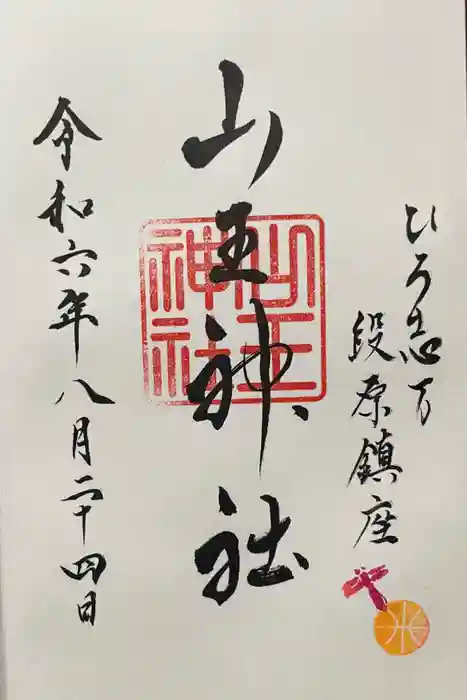 ひろ志万
段原鎮座
山王神社
山王神社
令和六年八月二十四日